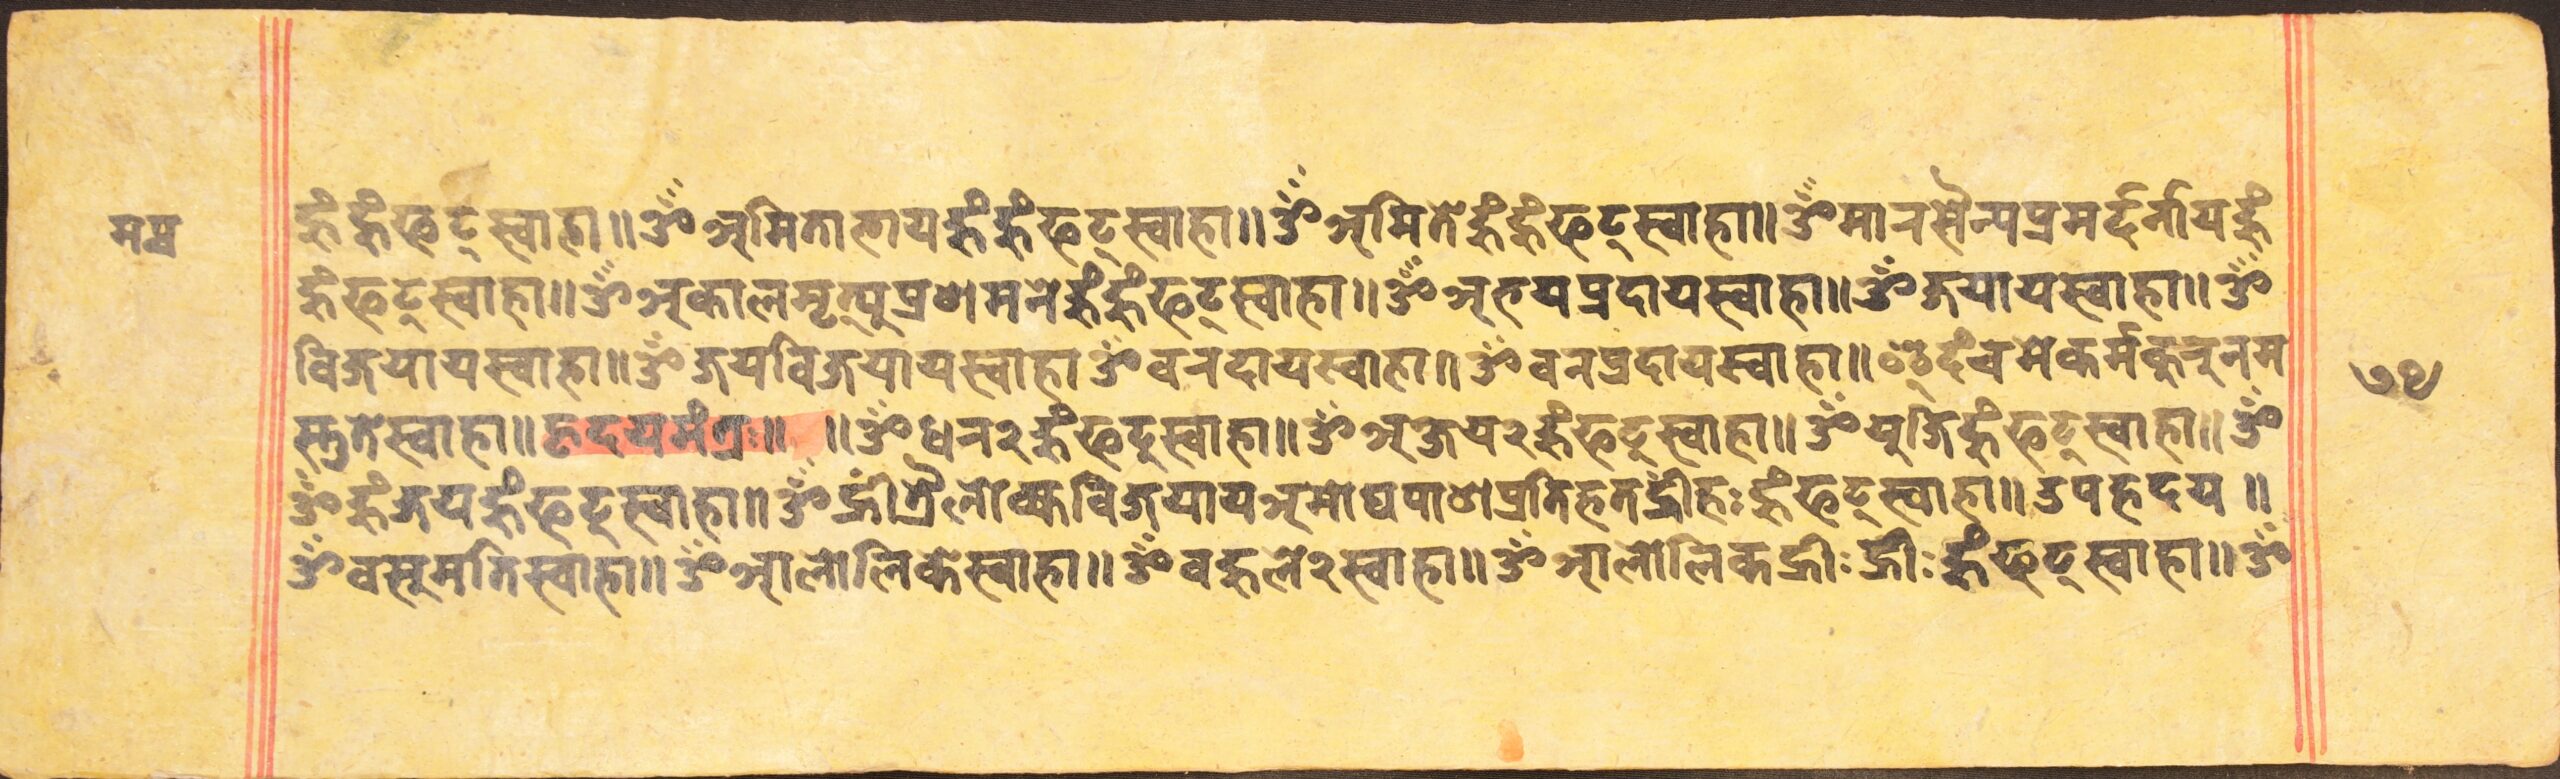 मष
हुं हुं फट् स्वाहा॥ ॐ अमिताभाय हुं हुं फट् स्वाहा॥ ॐ अमिते हुं हुं फट् स्वाहा॥ ॐ मारसैन्यप्रमर्दनीय हुं
हुं फट् स्वाहा॥ ॐ अकालमृत्युप्रशमने हुं हुं फट् स्वाहा॥ ॐ अभयप्रदाय स्वाहा॥ ॐ जयाय स्वाहा॥ ॐ
विजयाय स्वाहा॥ ॐ जयविजयाय स्वाहा ॐ वरदाय स्वाहा॥ ॐ वरप्रदाय स्वाहा॥ इदं च मे कर्म कुरु नम
स्तुते स्वाहा॥ हृदयमंत्रः॥ ॥ ॐ धर२ हुं फट् स्वाहा॥ ॐ अजेय२ हुं फट् स्वाहा॥ ॐ युजि हुं फट् स्वाहा॥ ॐ
ॐ हुं जय हुं फट् स्वाहा॥ ॐ ह्रीं त्रैलोक्यविजयाय अमोघपाशप्रतिहत ह्रीं हः हुं फट् स्वाहा॥ उपहृदय॥
ॐ वसुमति स्वाहा॥ ॐ आलोलिके स्वाहा॥ ॐ बहुले२ स्वाहा॥ ॐ आलोलिक ह्रीः ह्रीः हुं फट् स्वाहा॥ ॐ